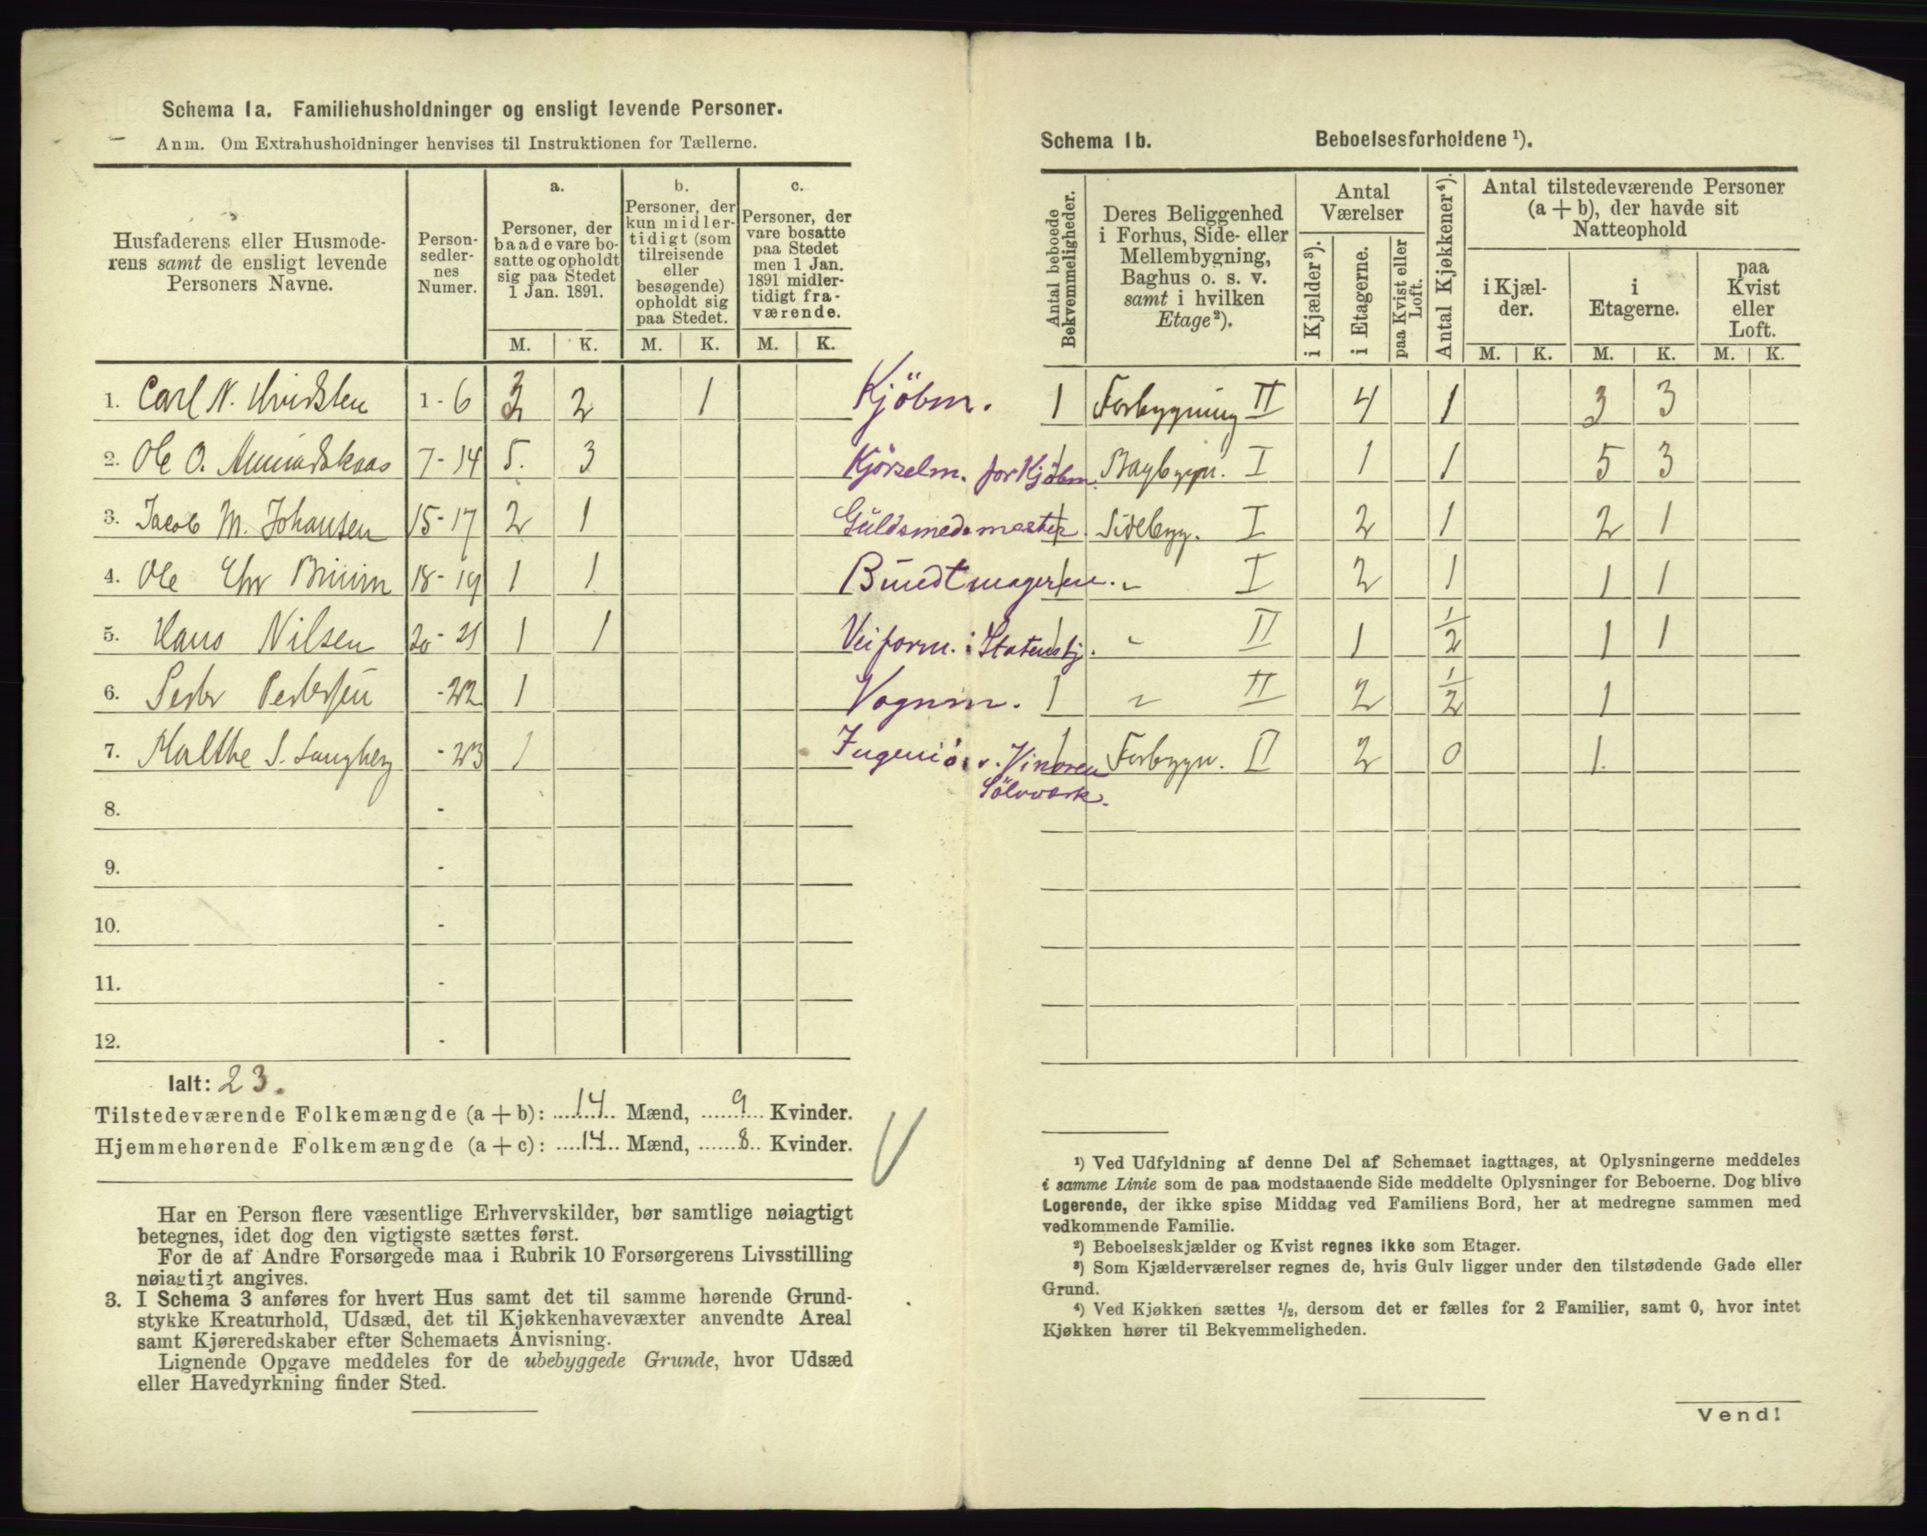 Schema 1a. Familiehusholdninger og ensligt levende Personer.
Anm. Om Extrahusholdninger henvises til Instruktionen for Tællerne.
Husfaderens eller Husmode-
rens samt de ensligt levende
Personers Navne.
Person-
sedler-
nes
Numer.
a.
Personer, der
baade vare bo-
satte og opholdt
sig paa Stedet
1 Jan. 1891.
b.
Personer, der
kun midler-
tidigt (som
tilreisende
eller
besøgende)
opholdt sig
paa Stedet.
c.
Personer, der
vare bosatte
paa Stedet
men 1 Jan.
1891 midler-
tidigt fra-
værende.
M. K. M. K. M. K.
1. Carl N. Hvidsten 1 - 6 3 2 1
2. Ole O. Amundskaas 7 - 14 5. 3
3. Jacob M. Johansen 15 - 17 2 1
4. Ole Chr Bruun 18 - 19 1 1
5. Hans Nilsen 20 - 21 1 1
6. Peder Pedersen - 22 1
7. Malthe S. Langberg - 23 1
8. -
9. -
10. -
11. -
12. -
Ialt: 23.
Tilstedeværende Folkemængde (a + b): 14 Mænd, 9 Kvinder.
Hjemmehørende Folkemængde (a + c): 14 Mænd, 8 Kvinder.
Har en Person flere væsentlige Erhvervskilder, bør samtlige nøiagtigt
betegnes, idet dog den vigtigste sættes først.
For de af Andre Forsørgede maa i Rubrik 10 Forsørgerens Livsstilling
nøiagtigt angives.
3. I Schema 3 anføres for hvert Hus samt det til samme hørende Grund-
stykke Kreaturhold, Udsæd, det til Kjøkkenhavevæxter anvendte Areal
samt Kjøreredskaber efter Schemaets Anvisning.
Lignende Opgave meddeles for de ubebyggede Grunde, hvor Udsæd
eller Havedyrkning finder Sted.
Schema 1b. Beboelsesforholdene ¹).
Antal beboede
Bekvemmeligheder.
Deres Beliggenhed
i Forhus, Side- eller
Mellembygning,
Baghus o. s. v.
samt i hvilken
Etage²).
Antal
Værelser
i Kjælder³).
i Etagerne.
paa Kvist eller
Loft.
Antal Kjøkkener⁴).
Antal tilstedeværende Personer
(a + b), der havde sit
Natteophold
i Kjæl-
der.
i
Etagerne.
paa
Kvist
eller
Loft.
M. K. M. K. M. K.
Kjöbm. 1 Forbygning II 4 1 3 3
Kjörselm. for Kjöbm. 1 Bagbygn. I 1 1 5 3
Guldsmedmester. 1 Sidebyg. I 2 1 2 1
Bundtmageren. 1 " I 2 1 1 1
Veiform. i Statensbj. 1 " II 1 1/2 1 1
Vognm. 1 " II 2 1/2 1
Ingeniör v. Vinoren 1 Forbygn. II 2 0 1.
Sölvværk.
¹) Ved Udfyldning af denne Del af Schemaet iagttages, at Oplysningerne meddeles
i samme Linie som de paa modstaaende Side meddelte Oplysninger for Beboerne. Dog blive
Logerende, der ikke spise Middag ved Familiens Bord, her at medregne sammen med
vedkommende Familie.
²) Beboelseskjælder og Kvist regnes ikke som Etager.
³) Som Kjælderværelser regnes de, hvis Gulv ligger under den tilstødende Gade eller
Grund.
⁴) Ved Kjøkken sættes ½, dersom det er fælles for 2 Familier, samt 0, hvor intet
Kjøkken hører til Bekvemmeligheden.
Vend!